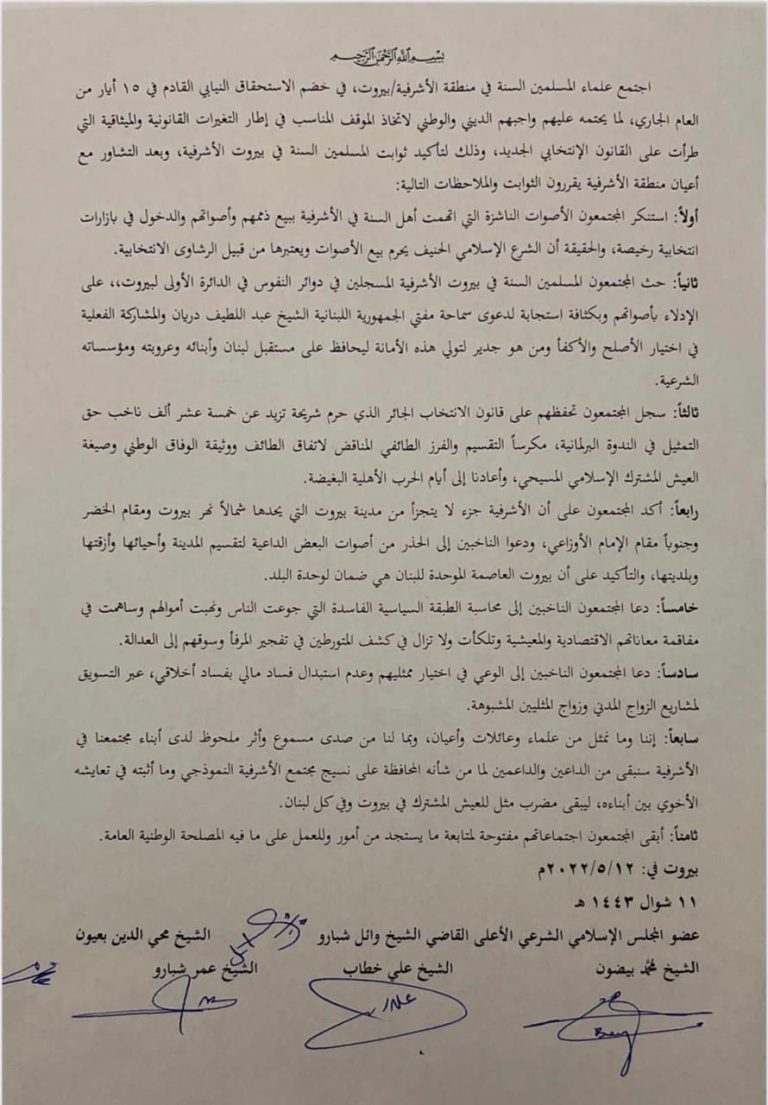 بسم الله الرحمن الرحيم
اجتمع علماء المسلمين السنة في منطقة الأشرفية/بيروت، في خضم الاستحقاق النيابي القادم في ١٥ أيار من
العام الجاري، لما يحتمه عليهم واجبهم الديني والوطني لاتخاذ الموقف المناسب في إطار التغيرات القانونية والميثاقية التي
طرأت على القانون الإنتخابي الجديد، وذلك لتأكيد ثوابت المسلمين السنة في بيروت الأشرفية، وبعد التشاور مع
أعيان منطقة الأشرفية يقررون الثوابت والملاحظات التالية:
أولاً: استنكر المجتمعون الأصوات الناشزة التي اتهمت أهل السنة في الأشرفية ببيع ذممهم وأصواتهم والدخول في بازارات
انتخابية رخيصة، والحقيقة أن الشرع الإسلامي الحنيف يحرم بيع الأصوات ويعتبرها من قبيل الرشاوى الانتخابية.
ثانياً: حث المجتمعون المسلمين السنة في بيروت الأشرفية المسجلين في دوائر النفوس في الدائرة الأولى لبيروت،، على
الإدلاء بأصواتهم وبكثافة استجابة لدعوى سماحة مفتي الجمهورية اللبنانية الشيخ عبد اللطيف دريان والمشاركة الفعلية
في اختيار الأصلح والأكفأ ومن هو جدير لتولي هذه الأمانة ليحافظ على مستقبل لبنان وأبنائه وعروبته ومؤسساته
الشرعية.
ثالثاً: سجل المجتمعون تحفظهم على قانون الانتخاب الجائر الذي حرم شريحة تزيد عن خمسة عشر ألف ناخب حق
التمثيل في الندوة البرلمانية، مكرساً التقسيم والفرز الطائفي المناقض لاتفاق الطائف ووثيقة الوفاق الوطني وصيغة
العيش المشترك الإسلامي المسيحي، وأعادنا إلى أيام الحرب الأهلية البغيضة.
رابعاً: أكد المجتمعون على أن الأشرفية جزء لا يتجزأ من مدينة بيروت التي يحدها شمالاً نهر بيروت ومقام الخضر
وجنوباً مقام الإمام الأوزاعي، ودعوا الناخبين إلى الحذر من أصوات البعض الداعية لتقسيم المدينة وأحيائها وأزقتها
وبلديتها، والتأكيد على أن بيروت العاصمة الموحدة للبنان هي ضمان لوحدة البلد.
خامساً: دعا المجتمعون الناخبين إلى محاسبة الطبقة السياسية الفاسدة التي جوعت الناس ونهبت أموالهم وساهمت في
مفاقمة معاناتهم الاقتصادية والمعيشية وتلكأت ولا تزال في كشف المتورطين في تفجير المرفأ وسوقهم إلى العدالة.
سادساً: دعا المجتمعون الناخبين إلى الوعي في اختيار ممثليهم وعدم استبدال فساد مالي بفساد أخلاقي، عبر التسويق
لمشاريع الزواج المدني وزواج المثليين المشبوهة.
سابعاً: إننا وما نمثل من علماء وعائلات وأعيان، وبما لنا من صدى مسموع وأثر ملحوظ لدى أبناء مجتمعنا في
الأشرفية سنبقى من الداعين والداعمين لما من شأنه المحافظة على نسيج مجتمع الأشرفية النموذجي وما أثبته في تعايشه
الأخوي بين أبناءه، ليبقى مضرب مثل للعيش المشترك في بيروت وفي كل لبنان.
ثامناً: أبقى المجتمعون اجتماعاتهم مفتوحة لمتابعة ما يستجد من أمور وللعمل على ما فيه المصلحة الوطنية العامة.
بيروت في: ٢٠٢٢/٥/١٢م
١١ شوال ١٤٤٣ هـ
عضو المجلس الإسلامي الشرعي الأعلى القاضي الشيخ وائل شبارو الشيخ محي الدين بعيون
الشيخ محمد بيضون الشيخ علي خطاب الشيخ عمر شبارو